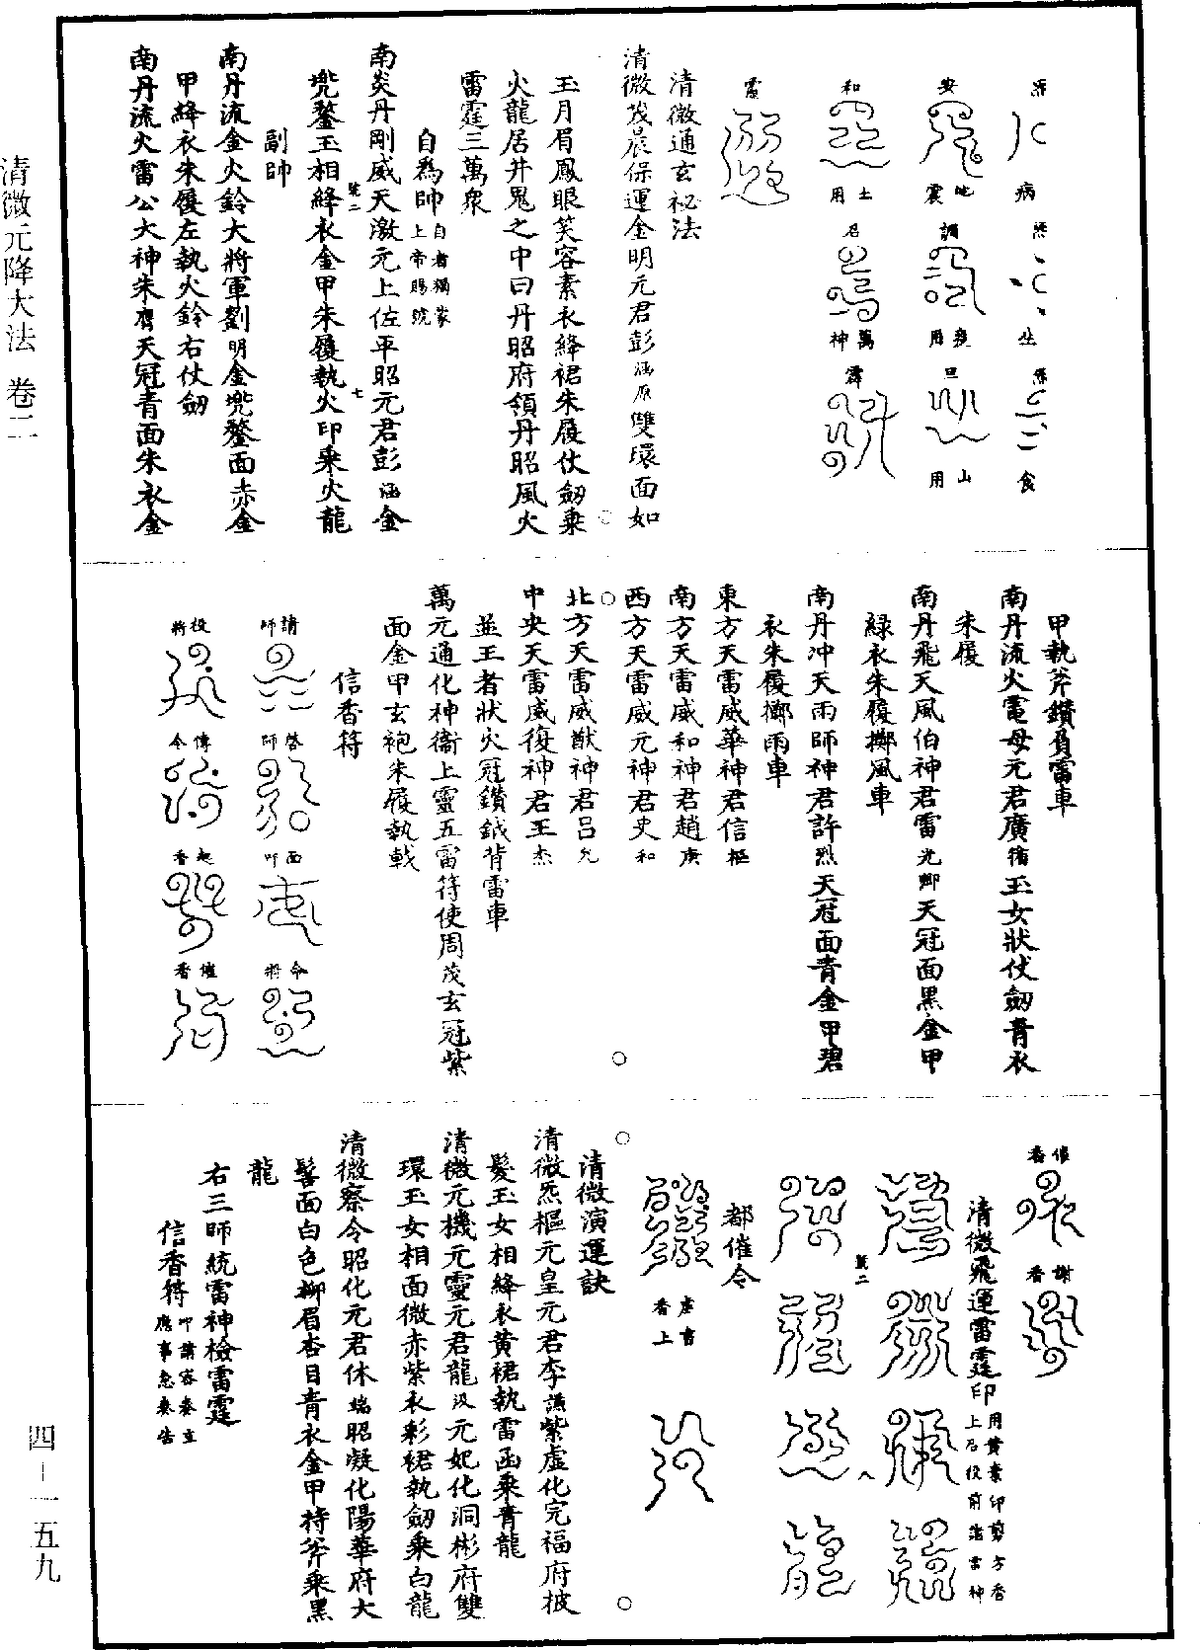 清微元降大法 卷二
安 地震
和 土用
霹
召 萬神
病
食
旦 山用
清微通玄祕法
清微茂晨保運金明元君彭涵原雙環面如
玉月眉鳳眼笑容素衣絳裙朱履仗劒乗
火龍居井鬼之中曰丹昭府領丹昭風火
雷霆三萬衆
自爲帥自者獨蒙上帝賜號
南炎丹剛威天激元上佐平昭元君彭涵金
兠鍪玉相絳衣金甲朱履執火印乗火龍
號二
七
副帥
南丹流金火鈴大將軍劉明金兠鍪面赤金
甲絳衣朱履左執火鈴右仗劒
南丹流火雷公大神朱賡天冠青面朱衣金
甲執斧鑽負雷車
南丹流火電母元君廣脩玉女狀仗劒青衣
朱履
南丹飛天風伯神君雷光卿天冠面黒金甲
綠衣朱履擲風車
南丹冲天雨師神君許烈天冠面青金甲碧
衣朱履擲雨車
東方天雷威華神君信樞
南方天雷威和神君趙庚
西方天雷威元神君史和
北方天雷威猷神君吕允
中央天雷威復神君王杰
並王者狀火冠鑽鉞背雷車
萬元通化神衞上靈五雷符使周茂玄冠紫
面金甲玄袍朱履執戟
信香符
請師
啓師
面叩
令將
役將
傳令
起香
催香
催香
謝香
清微飛運雷霆印用黄素印剪方香
號二
八
都催令
虚書香上
清微演運訣
清微炁樞元皇元君李謙紫虚化完福府披
髮玉女相絳衣黄裙執雷函乗青龍
清微元機元靈元君龍汲元妃化洞彬府雙
環玉女相面微赤紫衣彩裙執劒乗白龍
清微察令昭化元君休端昭凝化陽華府大
髻面白色柳眉杏目青衣金甲持斧乗黒
龍
右三師統雷神檢雷霆
信香符叩請容奏立應事急奏告
四–一五九